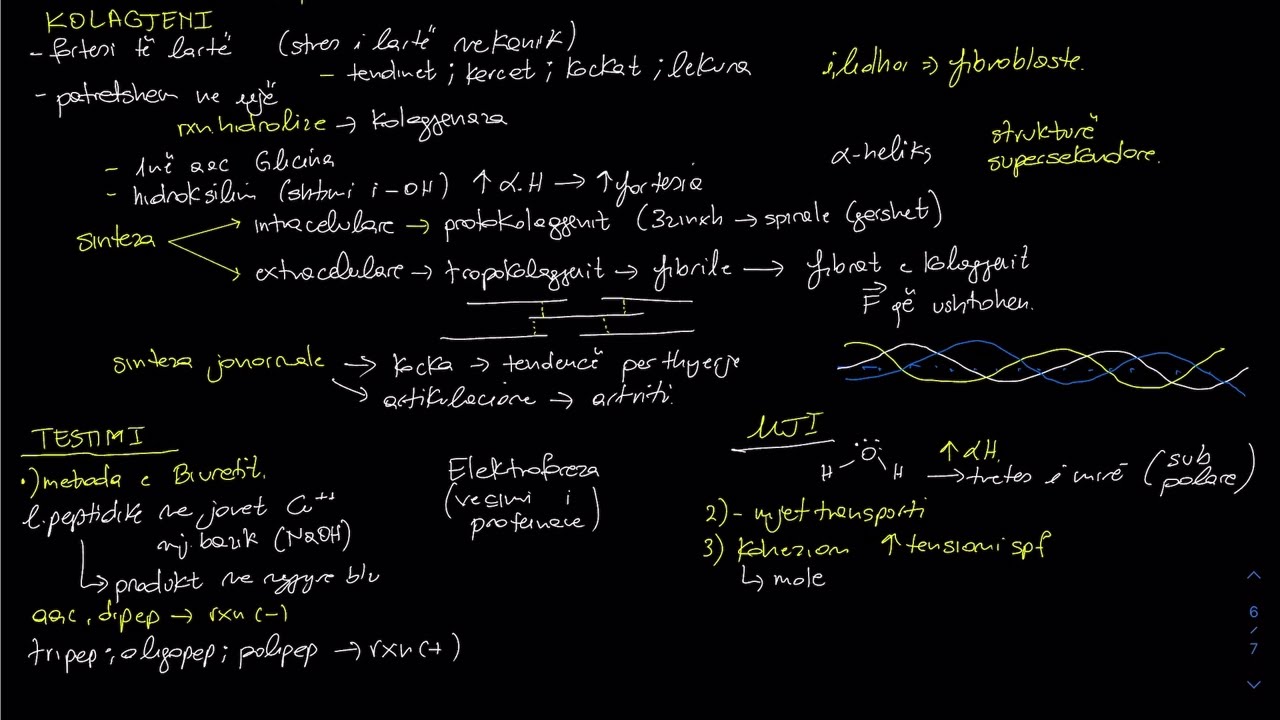 KOLAGJENI
- fortesi të lartë (stres i lartë mekanik)
- tendinet ; kercet ; kockat ; lekura
i lidhor => fibroblaste.
- patretshem ne ujë
rxn. hidrolize → kolagjenaza
- 1në aac Glicina
α-heliks
strukturë
supersekondore.
- hidroksilim (shtimi i -OH) ↑ α.H → ↑ fortesia
sinteza
intracelulare → protokolagjenit (3zinxh → spirale (gershet)
extracelulare → tropokolagjenit → fibrile → fibrat e kolagjenit
F që ushtrohen.
sinteza jonormale → kocka → tendencë per thyerje
→ artikulacione → artriti.
TESTIMI
•) metoda e Biuretit.
l. peptidike ne javet Cu++
mj. bazik (NaOH)
↳ produkt ne ngjyre blu
aac, dipep → rxn (-)
tripep ; oligopep ; polipep → rxn (+)
Elektroforeza
(vecimi i
proteinave)
UJI
H O H ↑ αH → tretes i mirë (sub polare)
2) - mjet transporti
3) kohezion ↑ tensioni spf
↳ mole
6
/
7